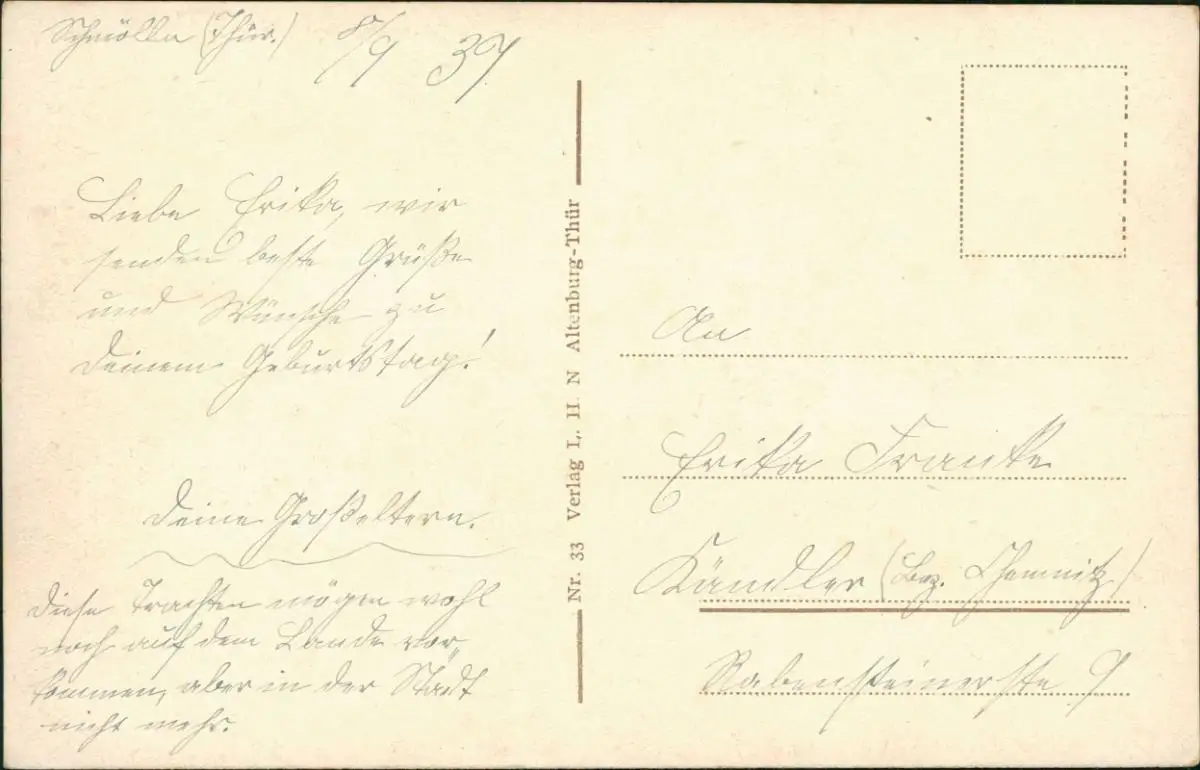 Schmölln (Thür.) 8/9 37
Liebe Erika, wir
senden beste Grüße
und Wünsche zu
Deinem Geburtstag!
Deine Großeltern.
Diese Trachten mögen wohl
noch auf dem Lande vor„
kommen, aber in der Stadt
nicht mehr.
Nr. 33 Verlag L. H. N Altenburg-Thür
An
Erika Franke
Kändler (Bez. Chemnitz)
Rabensteinerstr. 9